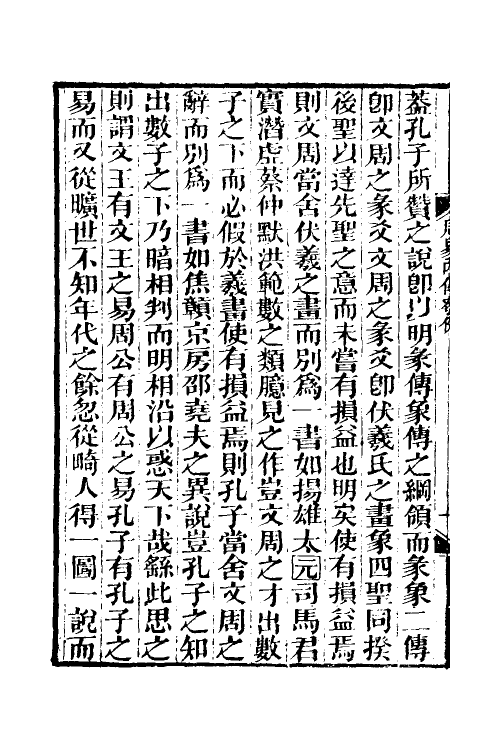 葢孔子所贊之說卽以明彖傳象傳之綱領而彖象二傳
卽文周之彖爻文周之彖爻卽伏羲氏之畫象四聖同揆
後聖以達先聖之意而未嘗有損益也明矣使有損益焉
則文周當舍伏羲之畫而別爲一書如揚雄太元司馬君
實潛虛蔡仲默洪範數之類臆見之作豈文周之才出數
子之下而必假於羲畫使有損益焉則孔子當舍文周之
辭而別爲一書如焦贛京房邵堯夫之異說豈孔子之知
出數子之下乃暗相判而明相沿以惑天下哉繇此思之
則謂文王有文王之易周公有周公之易孔子有孔子之
易而又從曠世不知年代之餘忽從畸人得一圖一說而